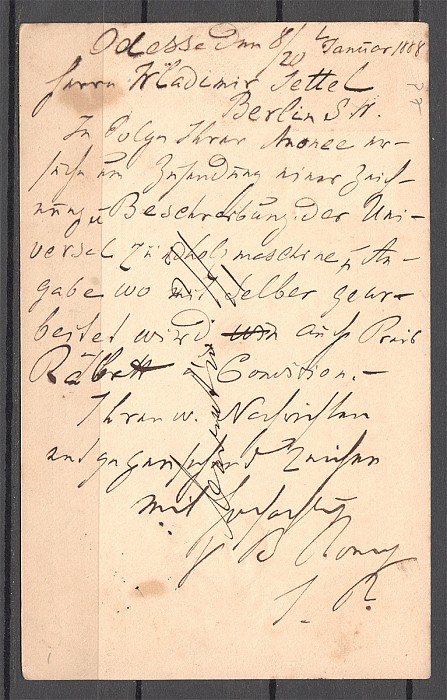 Odessa den 8/20 Januar 1888
Herrn Wladimir Settel
Berlin S.W.
In Folge Ihrer Anonce er-
suche um Zusendung einer Zeich-
nung u Beschreibung der Uni-
versel Zündholzmaschine, u An-
gabe wo mit selber gear-
beitet wird auch Preis
Rabatt Condition. -
Ihren w. Nachrichten
entgegensehend zeichne
mit
B